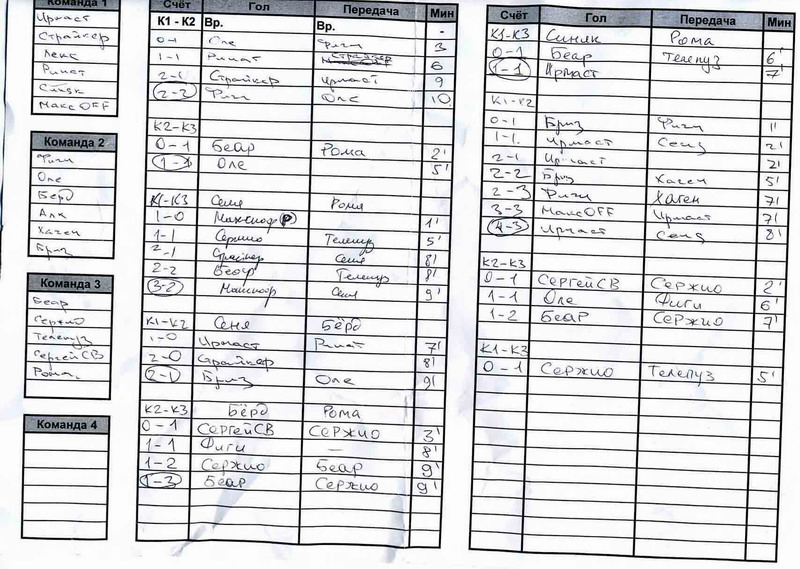 Команда 1
Ирмаст
Страйкер
Ринат
Синяк
МаксOFF
Команда 2
Фиги
Оле
Бёрд
Алк
Хаген
Бриз
Команда 3
Беар
Сержио
Телепуз
СергейСВ
Рома
Команда 4
Счёт Гол Передача Мин
К1 - К2 Вр. Вр. -
0-1 Оле Фиги 3
1-1 Ринат Страйкер 6
2-1 Страйкер Ирмаст 9
2-3 Фиги Оле 10
К2-К3
0-1 Беар Рома 2'
Оле 5'
К1-К3 Сеня Рома
1-0 1'
1-1 Сержио Телепуз 5'
2-1 Страйкер Сеня 8'
2-2 Беар Телепуз 8'
3-2 Сеня 9'
К1-К2 Сеня Бёрд
1-0 Ирмаст Ринат 7'
2-0 Страйкер 8'
Бриз Оле 9'
К2-К3 Бёрд Рома
0-1 СергейСВ Сержио 3'
1-1 Фиги — 8'
1-2 Сержио Беар 9'
1-3 Беар Сержио 9'
Счёт Гол Передача Мин
К1-К3 Синяк Рома
0-1 Беар Телепуз 6'
1-1 Ирмаст 7'
К1-К2
0-1 Бриз Фиги 1'
1-1. Ирмаст Сеня 2'
2-1 Ирмаст 2'
2-2 Бриз Хаген 5'
2-3 Фиги Хаген 7'
3-3 МаксOFF Ирмаст 7'
4-3 Ирмаст Сеня 8'
К2-К3
0-1 СергейСВ Сержио 2'
1-1 Оле Фиги 6'
1-2 Беар Сержио 7'
К1-К3
0-1 Сержио Телепуз 5'